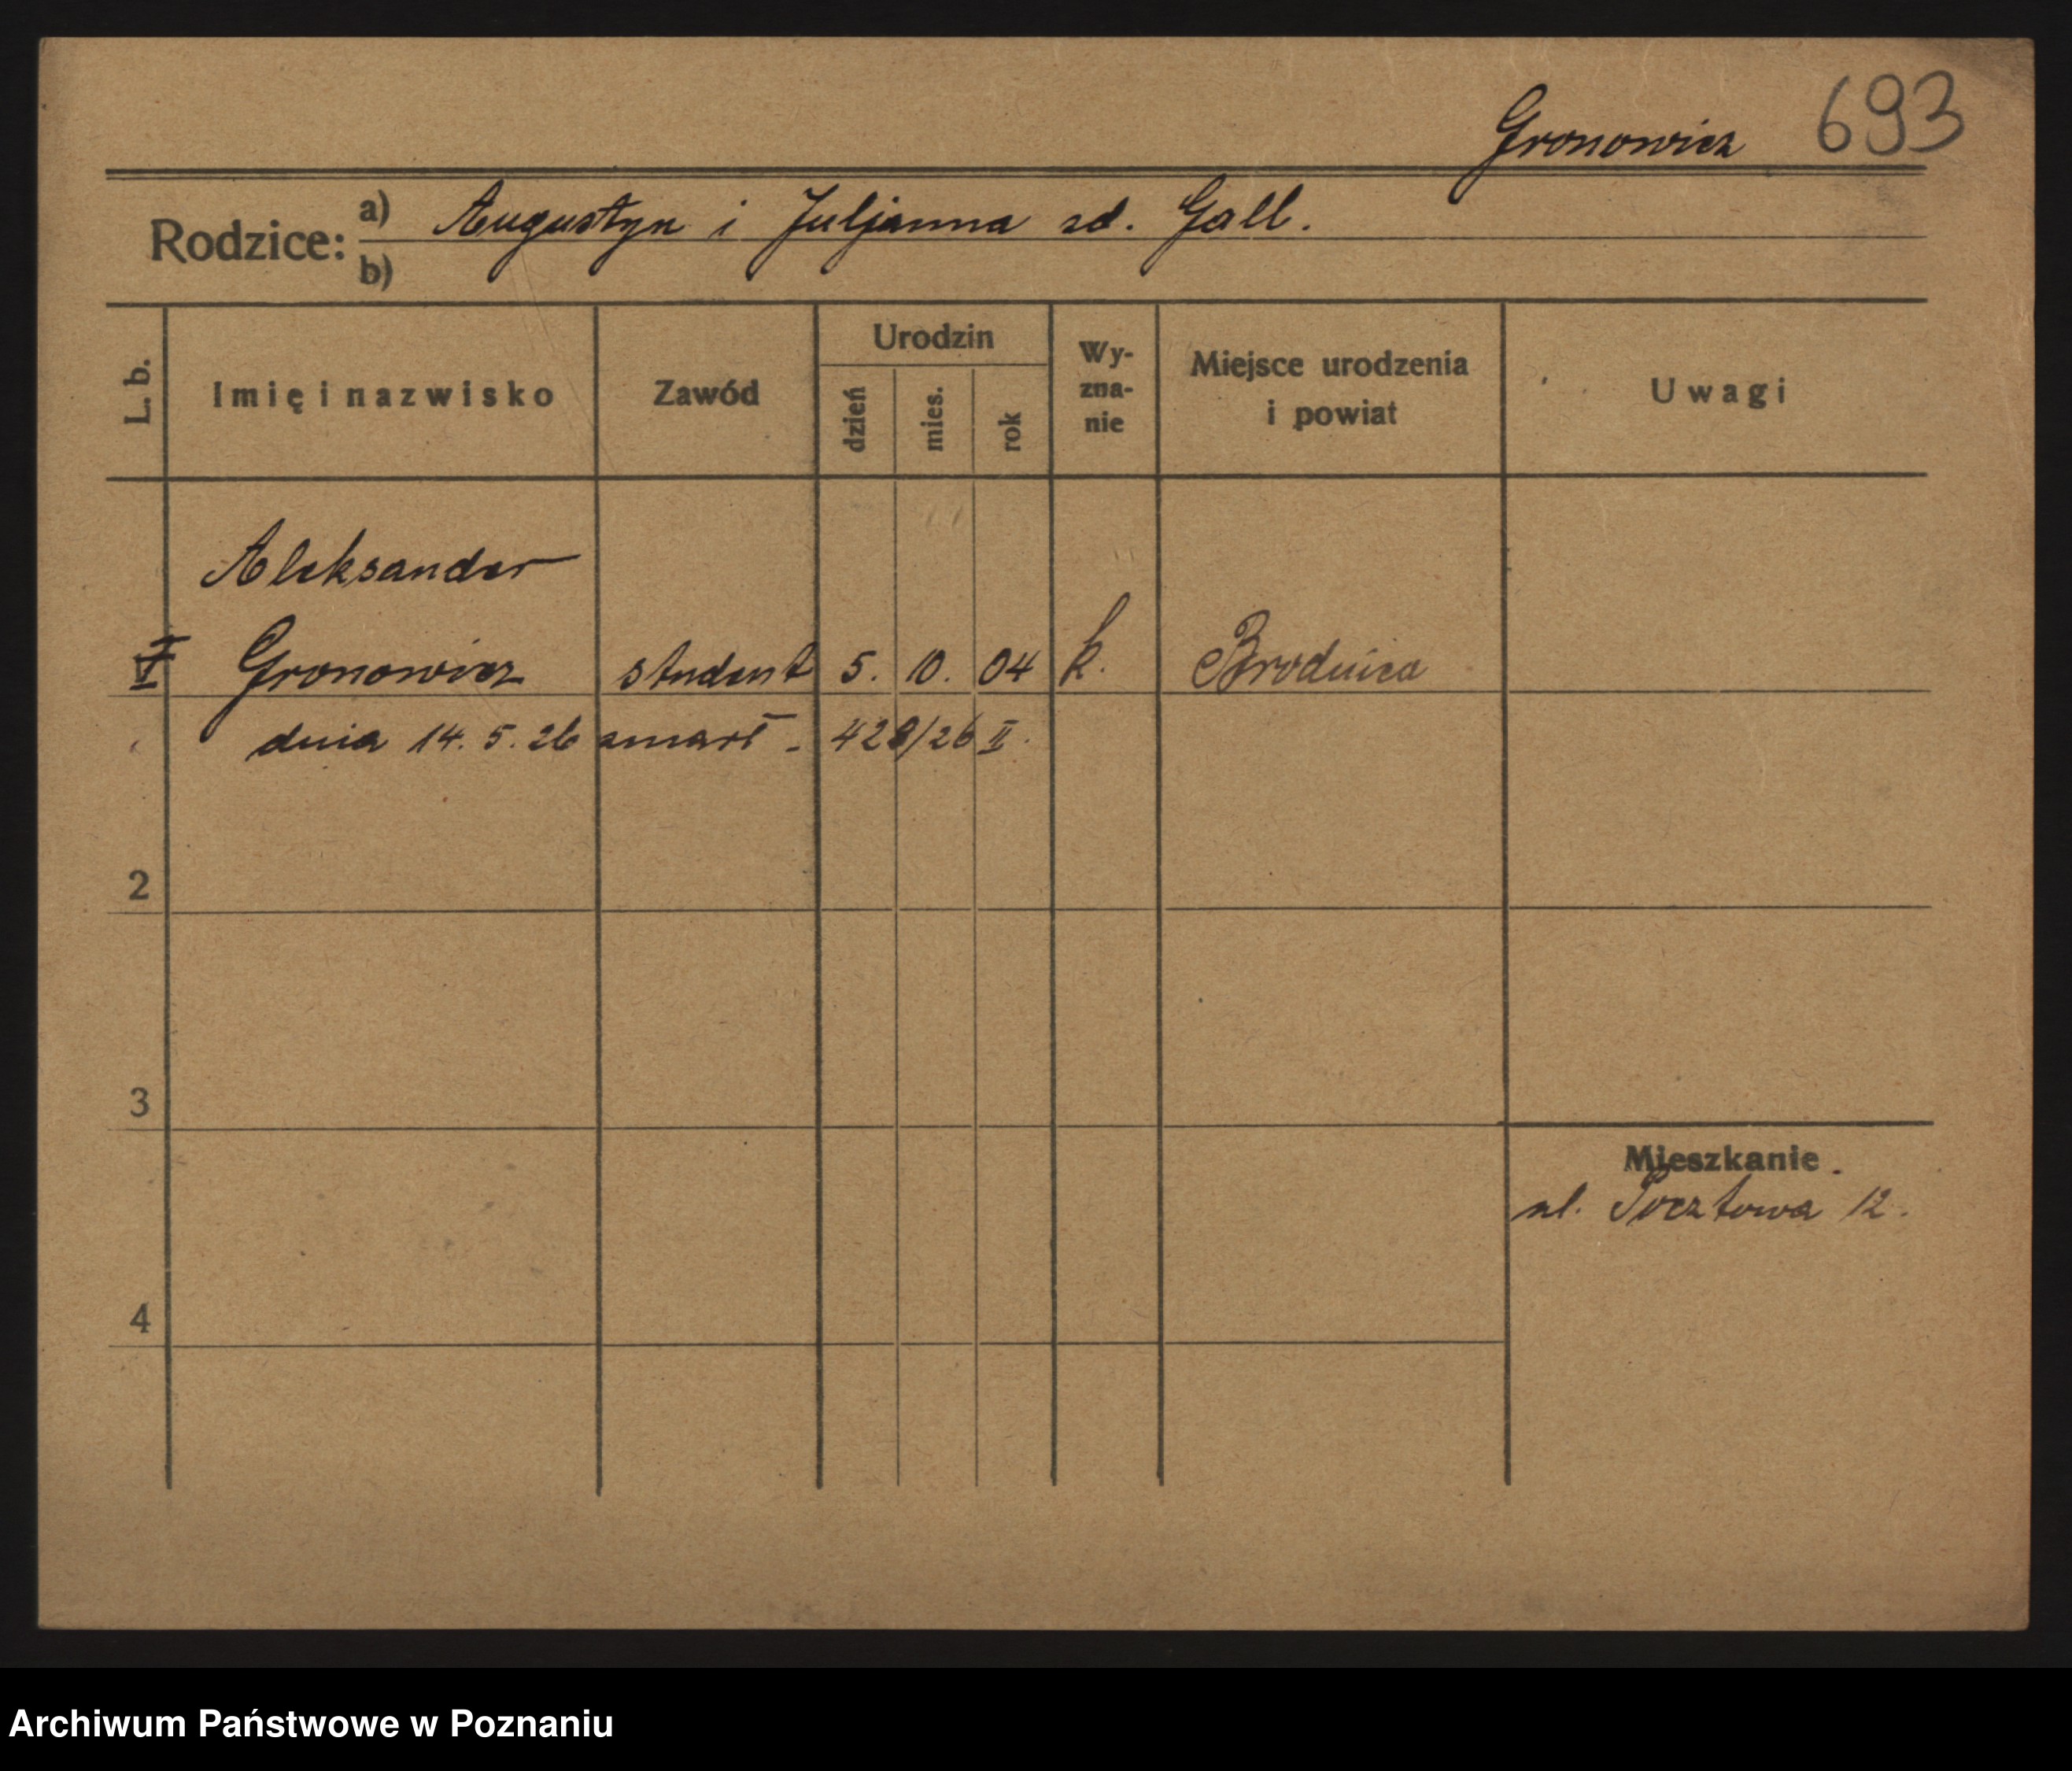 Gronowicz 693
Rodzice: a) Augustyn i Juljanna zd. Gall.
b)
L. b.
Imię i nazwisko
Zawód
Urodzin
dzień
mies.
rok
Wy-
zna-
nie
Miejsce urodzenia
i powiat
Uwagi
Aleksander
Gronowicz student 5. 10. 04 k. Brodnica
dnia 14. 5. 26 zmarł - /26 II.
2
3
Mieszkanie
ul. Pocztowa 12.
4
Archiwum Państwowe w Poznaniu